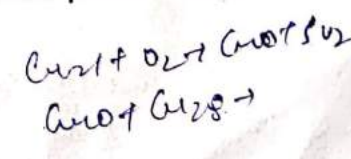 Cu2S + O2 → Cu2O + SO2
Cu2O + Cu2S →